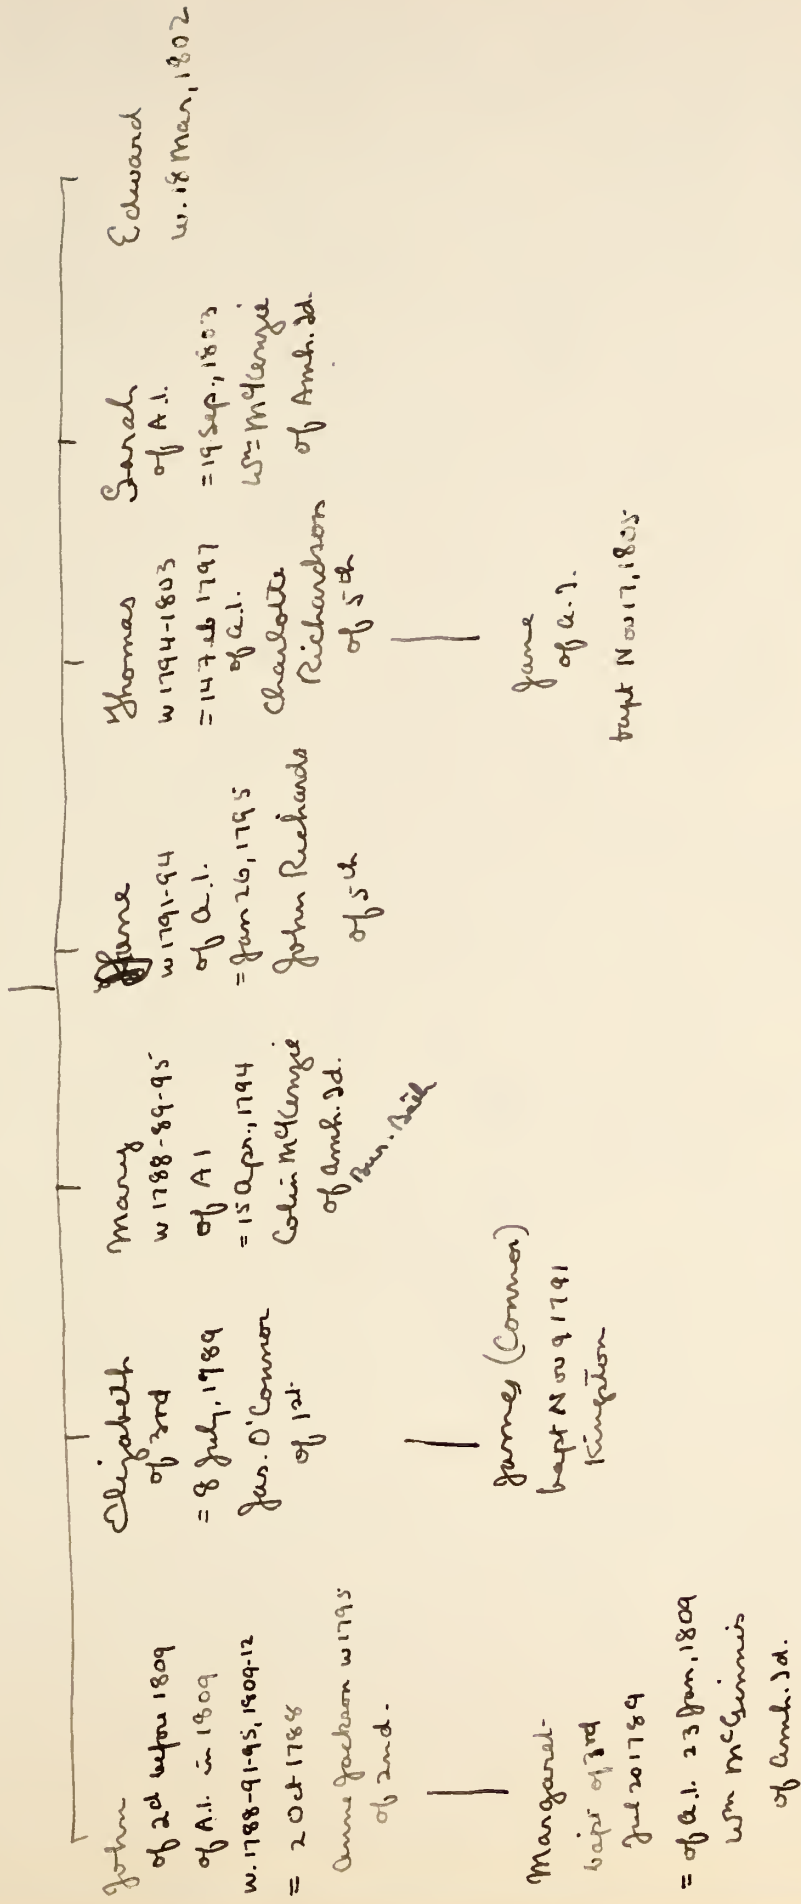 John
of 2d before 1809
of A.I. in 1809
w. 1788-91-95, 1809-12
= 2 Oct 1788
Anne Jackson w 1795
of 2nd.
Margaret
bapt of 3rd
Jul 20 1789
= of A.I. 23 Jan, 1809
Wm McGinnis
of Amh. Id.
Elizabeth
of 3rd
= 8 July, 1789
Jas. O'Connor
of 1st
James (Connor)
bapt Nov 9 1791
Kingston
Mary
w 1788-89-95
of A I
= 15 Apr., 1794
Colin McKenzie
of Amh. Id.
Jane
w 1791-94
of A.I.
= Jan 26, 1795
John Richards
of 5th
Thomas
w 1794-1803
= 14 Feb 1797
of A.I.
Charlotte
Richardson
of 5th
Jane
of A.I.
bapt Nov 17, 1805
Sarah
of A.I.
= 19 Sep., 1803
Wm McKenzie
of Amh. Id.
Edward
w. 18 Mar, 1802